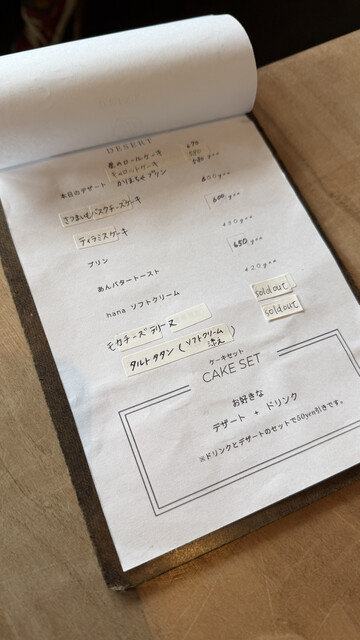 DESERT
栗のロールケーキ 670
キャロットケーキ 500
本日のデザート かぼちゃプリン 580 yen
さつまいもバスクチーズケーキ 600 yen
ティラミスケーキ 600 yen
プリン 450 yen
あんバタートースト 650 yen
hana ソフトクリーム 420 yen
モカチーズテリーヌ soldout
タルトタタン (ソフトクリーム添え) soldout
ケーキセット
CAKE SET
お好きな
デザート + ドリンク
※ドリンクとデザートのセットで50yen引きです。